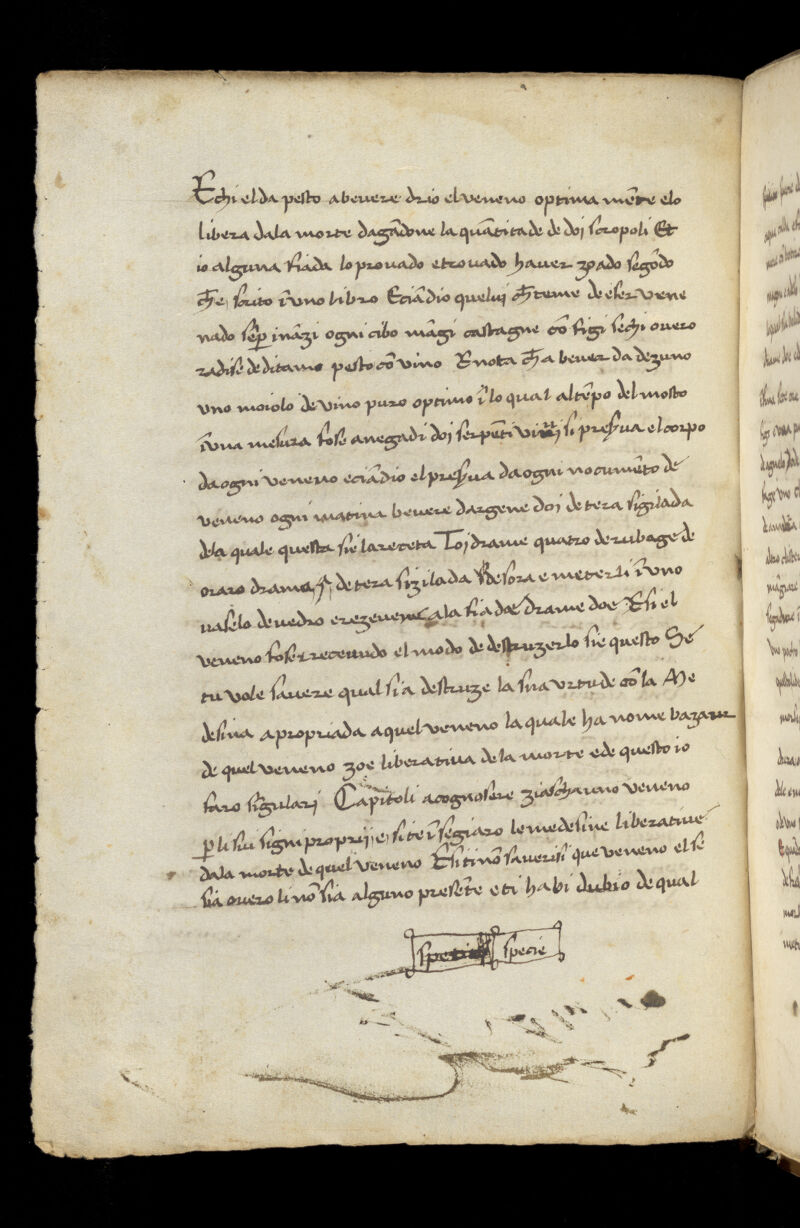 E chi el da pesto a bevere drio el veneno optima mẽte elo
libera dala morte dagãdone la quãtitade de doi scropoli Et
io alguna fiada lo provado e trovado haver zoado segõdo
ch̃ e scrito ĩ uno libro Eciãdio quelui ch̃ teme de eser vene
nado sẽp inãzi ogni cibo mãgi castagne cõ figi sechi overo
radise de ditamo pesto cõ vino E nota ch̃ a bever da dezuno
uno moiolo de vino puro optimo ĩ lo qual al tẽpo del mosto
ĩ una mesura fose anegadi doi serpẽti vivi si preserva el corpo
da ogni veneno eciãdio el preserva da ogni nocumẽto de
veneno ogni matina bevere dargene doi de tera sigilada
dela quale questa sie la receta Toi drame quatro de rubage de
oraro drama de tera sizilada desora e meterli ĩ uno
vaselo de vedro e rezevene ala fiada drame doe E si el
veneno fose recevudo el modo de destruzerlo sie questo Se
tu vole savere qual sia destruze la sua vrtude cõ la Me
desina apropriada a quel veneno la quale ha nome bazaar
de quel veneno zoe liberativa dela morte e de questo io
faro sĩgulari Capitoli a cognosere ziaschauno veneno
p li sui signi proprij e si te ĩsegiaro le medesine liberative
dala morte de quel veneno E si ti nõ saverisi que veneno el se
sia overo li nõ sia alguno presẽte e ti habi dubio de qual
specie